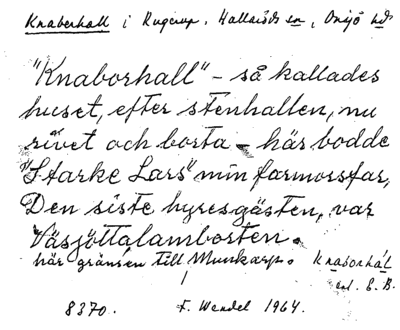 Knaberhall i Rugerup, Hallaröds sn, Onsjö hd
"Knaborhall" – så kallades
huset, efter stenhallen, nu
rivet och borta – här bodde
"Starke Lars" min farmorsfar,
Den siste hyresgästen, var
Väsjöttalamborten.
här gränsen till Munkarp. Knaborhal
enl. E.B.
8370. F. Wendel 1964.